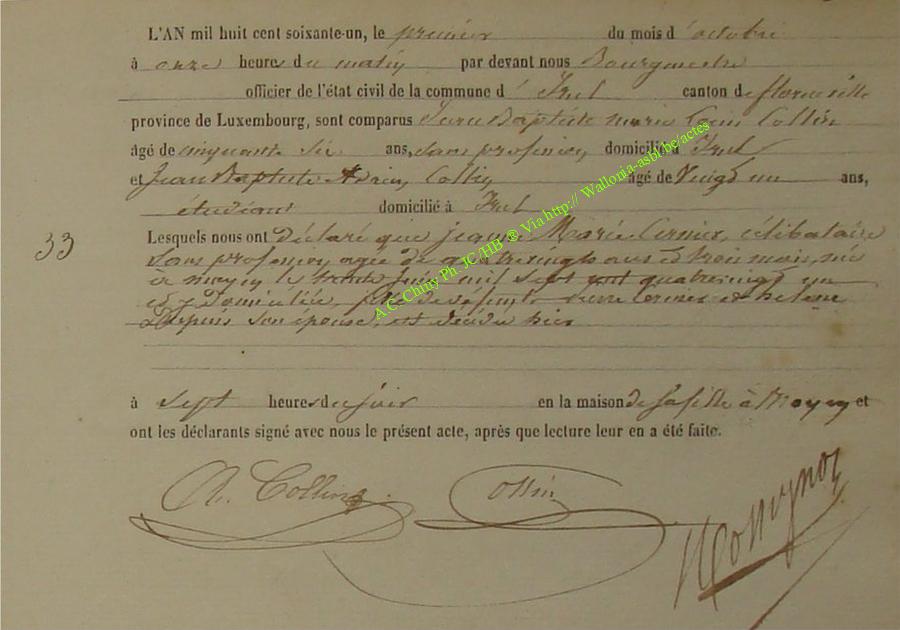 L'AN mil huit cent soixante-un, le premier du mois d'octobre
à onze heures du matin par devant nous Bourgmestre
officier de l'état civil de la commune d'Izel canton de florenville
province de Luxembourg, sont comparus Jean Baptiste marie Collin
âgé de cinquante six ans, sans profession, domicilié à Izel
et Jean Baptiste Adrien Collin âgé de Vingt un ans,
étudiant domicilié à Izel
33
Lesquels nous ont déclaré que jeanne Marie Cornier, célibataire
sans profession, agée de quatrevingts ans et trois mois, née
à moyen le trente juin mil sept cent quatrevingt un
et y domiciliée, fille de défunt pierre Cornier et helene
son épouse, est décédée hier
à sept heures du soir en la maison de sa fille à Moyen et
ont les déclarants signé avec nous le présent acte, après que lecture leur en a été faite.
A. Collin Collin
A C Chiny Ph JC /HB ® Via http:// Wallonia-asbl.be/actes